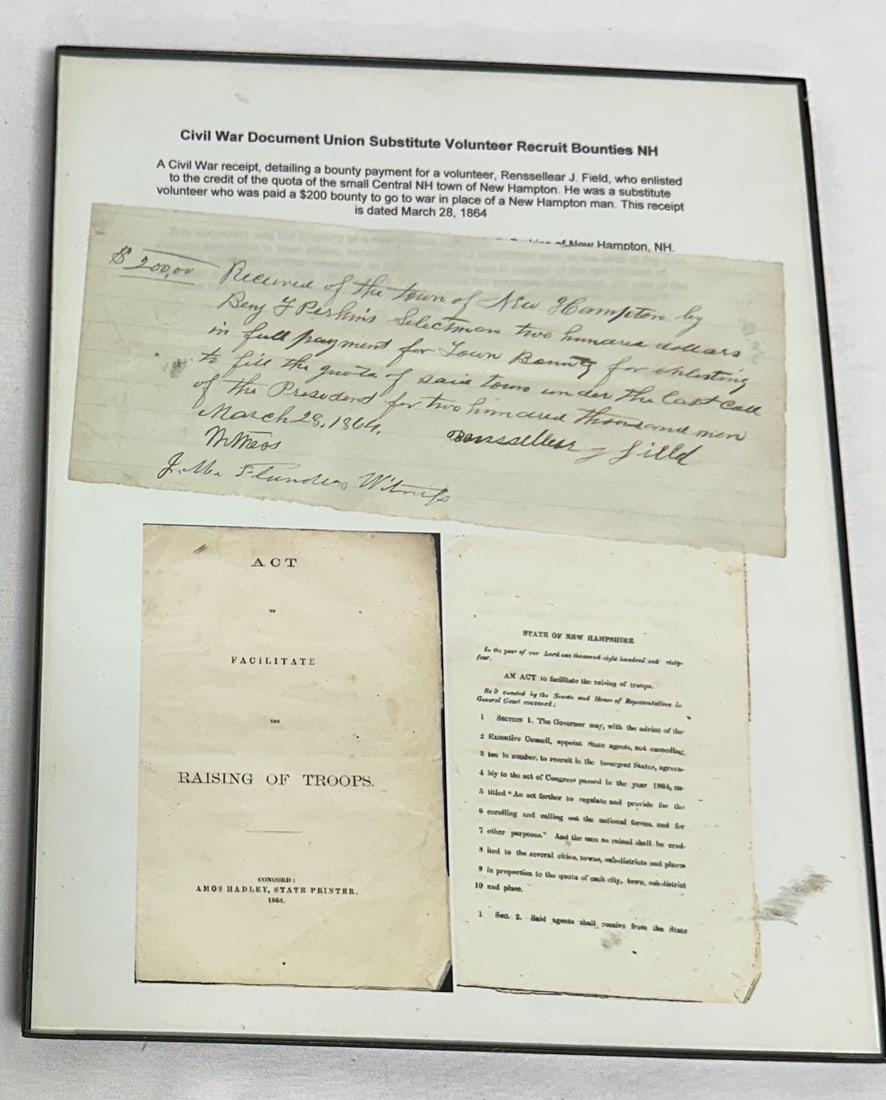 Civil War Document Union Substitute Volunteer Recruit Bounties NH
A Civil War receipt, detailing a bounty payment for a volunteer, Renssellear J. Field, who enlisted
to the credit of the quota of the small Central NH town of New Hampton. He was a substitute
volunteer who was paid a $200 bounty to go to war in place of a New Hampton man. This receipt
is dated March 28, 1864
of New Hampton, NH.
$200.00
Received of the town of New Hampton by
Benj F Perkins Selectman two hundred dollars
in full payment for Town Bounty for enlisting
to fill the quota of said town under the last call
of the President for two hundred thousand men
March 28, 1864.
Witness
Renssellear J Field
J. M. Flanders Witness
ACT
TO
FACILITATE
THE
RAISING OF TROOPS.
CONCORD:
AMOS HADLEY, STATE PRINTER.
1864.
STATE OF NEW HAMPSHIRE.
In the year of our Lord one thousand eight hundred and sixty-
four.
AN ACT to facilitate the raising of troops.
Be it enacted by the Senate and House of Representatives in
General Court convened:
1 Section 1. The Governor may, with the advice of the
2 Executive Council, appoint State agents, not exceeding
3 ten in number, to recruit in the insurgent States, agreea-
4 bly to the act of Congress passed in the year 1864, en-
5 titled "An act further to regulate and provide for the
6 enrolling and calling out the national forces, and for
7 other purposes." And the men so raised shall be cred-
8 ited to the several cities, towns, sub-districts and places
9 in proportion to the quota of each city, town, sub-district
10 and place.
1 Sec. 2. Said agents shall receive from the State